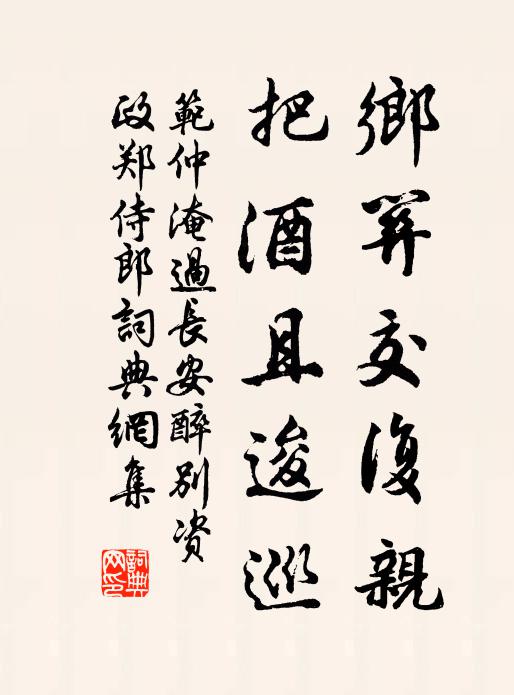 鄉關交復親
把酒且逡巡
範仲淹過長安醉别资
政郑侍郎詞典網集
詞典网印